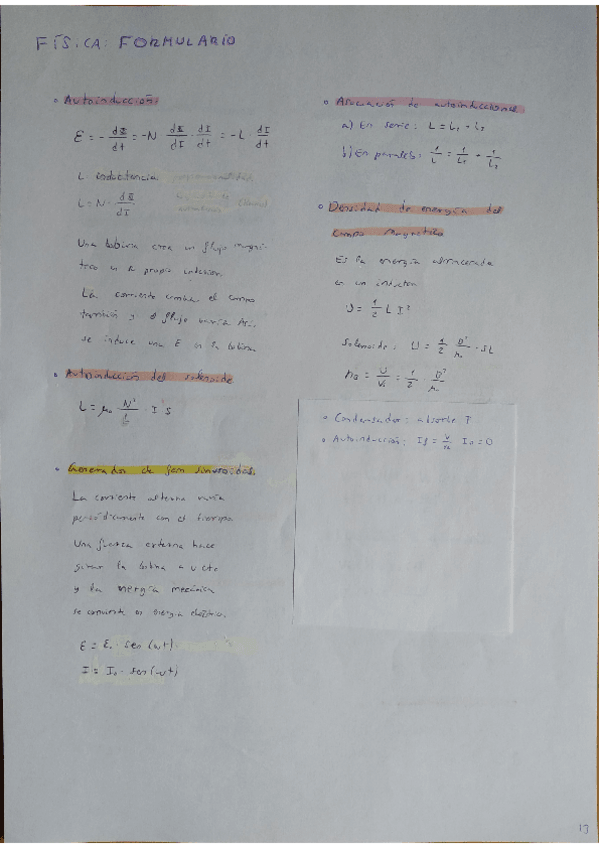 FÍSICA: FORMULARIO
• Autoinducción
ε = - dΦ/dt = -N · dΦ/dI · dI/dt = -L · dI/dt
L: inductancia
L = N · dΦ/dI
Una bobina crea un flujo magné-
tico en su propio interior.
La corriente cambia el campo
también y el flujo varía. Así,
se induce una ε en la bobina.
• Autoinducción del solenoide
• Generador de fem sinusoidal
La corriente alterna varía
periódicamente con el tiempo.
Una fuerza externa hace
girar la bobina a v cte
y la energía mecánica
se convierte en energía eléctrica.
ε = ε₀ · sen (ωt)
I = I₀ · sen (ωt)
• Asociación de autoinducciones
a) En serie: L = L₁ + L₂
b) En paralelo: 1/L = 1/L₁ + 1/L₂
• Densidad de energía del
campo magnético
Es la energía almacenada
en un inductor
U = 1/2 L I²
Solenoide: U = 1/2 B²/μ₀ · SL
= 1/2 · B²/μ₀
• Condensador: absorbe
• Autoinducción: I₀ = 0
13